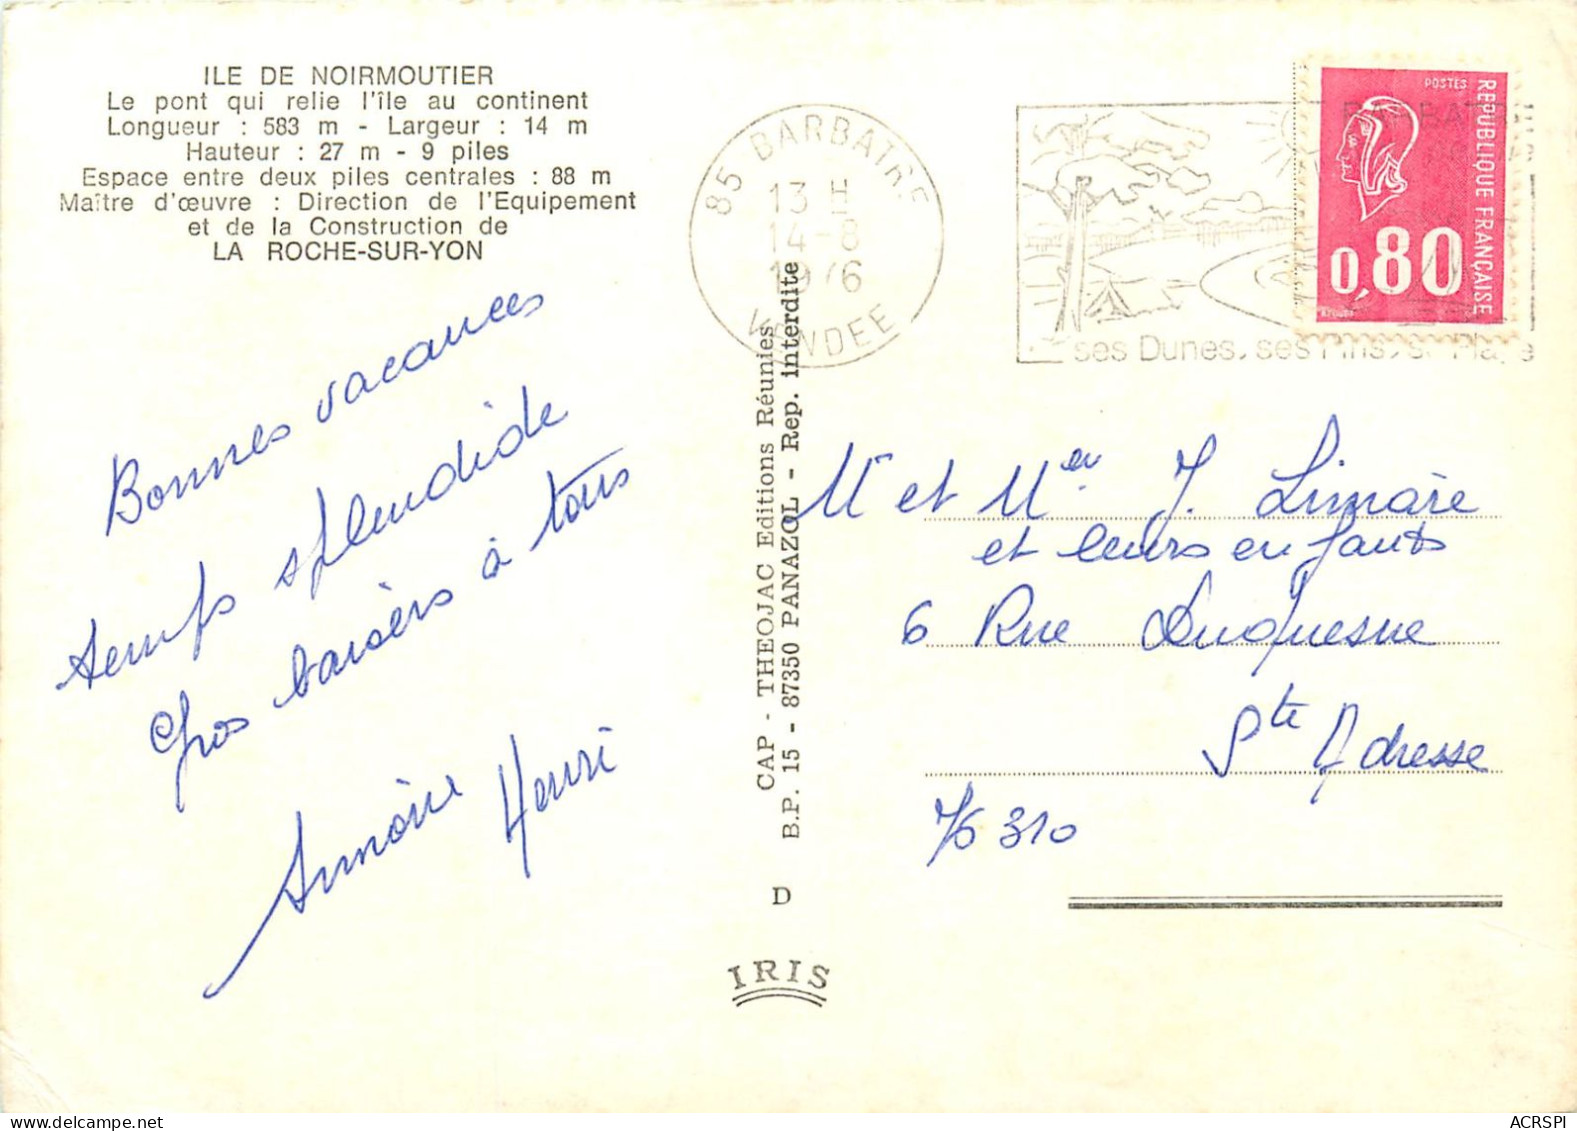 ILE DE NOIRMOUTIER
Le pont qui relie l'île au continent
Longueur : 583 m - Largeur : 14 m
Hauteur : 27 m - 9 piles
Espace entre deux piles centrales : 88 m
Maître d'œuvre : Direction de l'Equipement
et de la Construction de
LA ROCHE-SUR-YON
Bonnes vacances
temps splendide
Gros baisers à tous
Henri
CAP - THEOJAC Editions Réunies
B.P. 15 - 87350 PANAZOL - Rep. interdite
D
IRIS
85 BARBATRE
13 H
14-8
1976
VENDEE
BARBATRE
ses Dunes, ses Pins, sa Plage
POSTES
REPUBLIQUE FRANÇAISE
0,80
Mr et Mme J. Limare
et leurs enfants
6 Rue Duquesne
Ste Adresse
76310
ACRSPI
delcampe.net